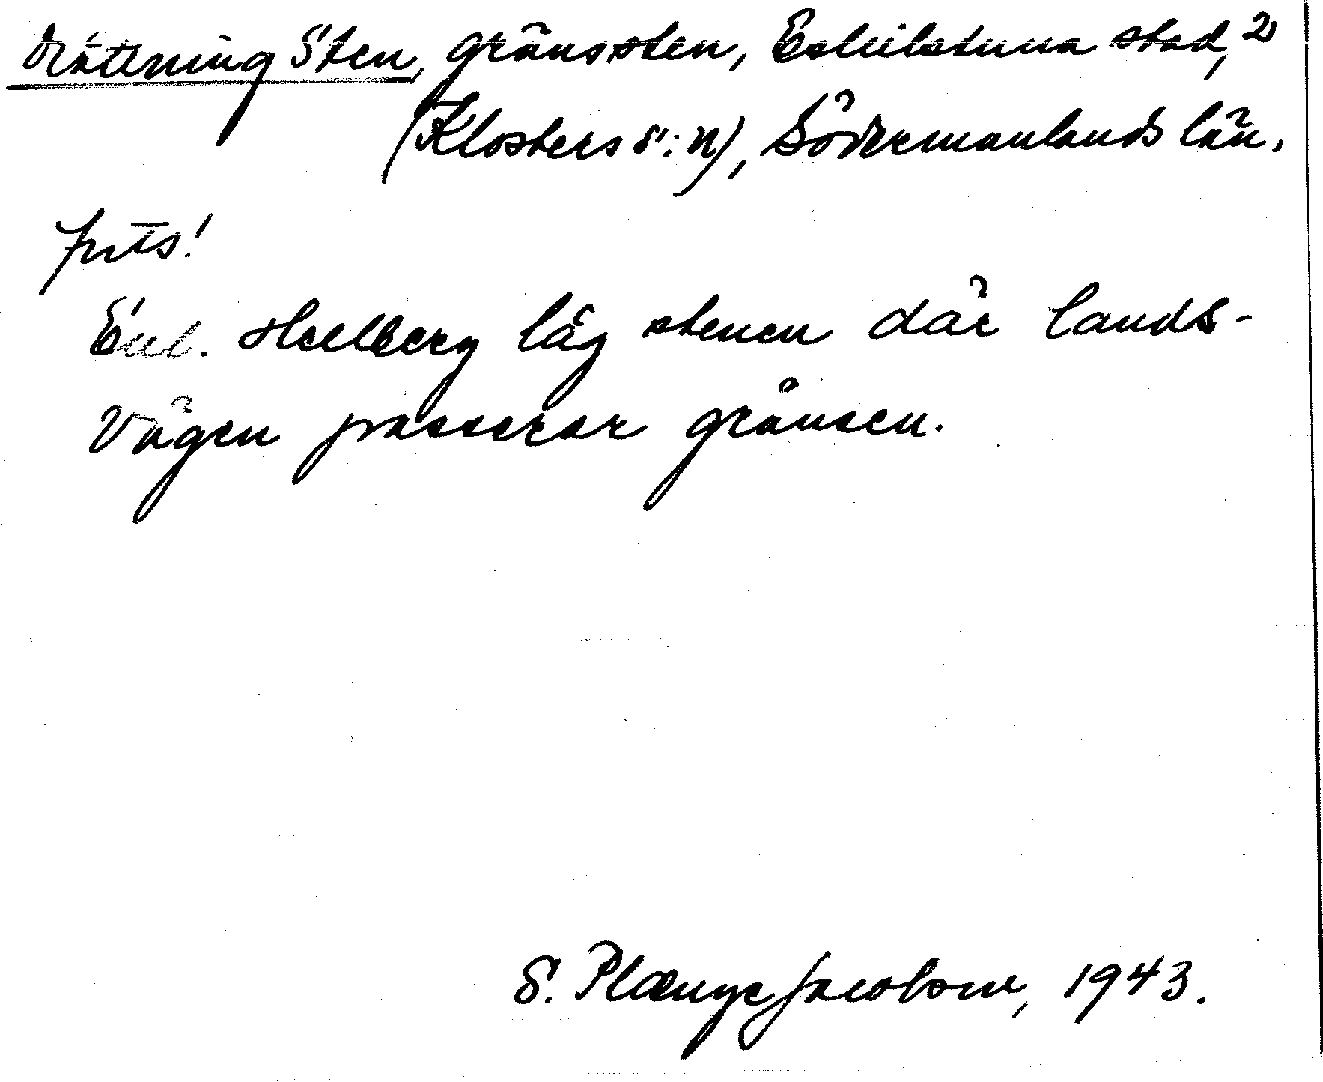 Drottning Sten, gränssten, Eskilstuna stad, 2
(Klosters s:n), Södermanlands län.
forts!
Enl. Hellberg låg stenen där lands-
vägen passerar gränsen.
S. Plænge Jacobson, 1943.